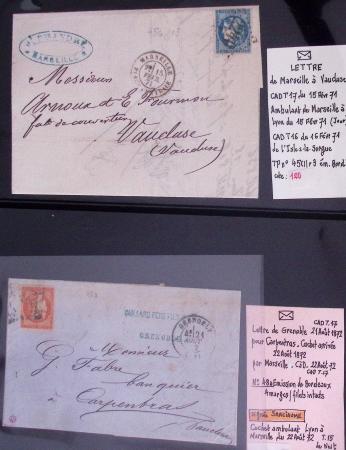 MARSEILLE
MARSEILLE
Messieurs
Arnoux et E. Fournion
fab. de couvertures
Vaucluse
(Vaucluse)
LETTRE
de Marseille à Vaucluse
CAD T 17 du 15 Fév 71
Ambulant de Marseille à
Lyon du 15 Fév 71 (Jour)
CAD T 16 du 16 Fév 71
de l'Isle s la Sorgue
TP n° 45 II r 3 Em. Bord
cote : 120
GRENOBLE
GRENOBLE
Monsieur
G Fabre
banquier
à
Carpentras
Vaucluse
CAD T.17
Lettre de Grenoble 21 Août 1872
pour Carpentras. Cachet arrivée
22 Août 1872
par Marseille - CàD. 22 Août 72
CAD T.17
N° 48a Emission de Bordeaux
4 marges / filets intacts
Cachet ambulant Lyon à
Marseille du 22 Août 72 T.15
de Nuit